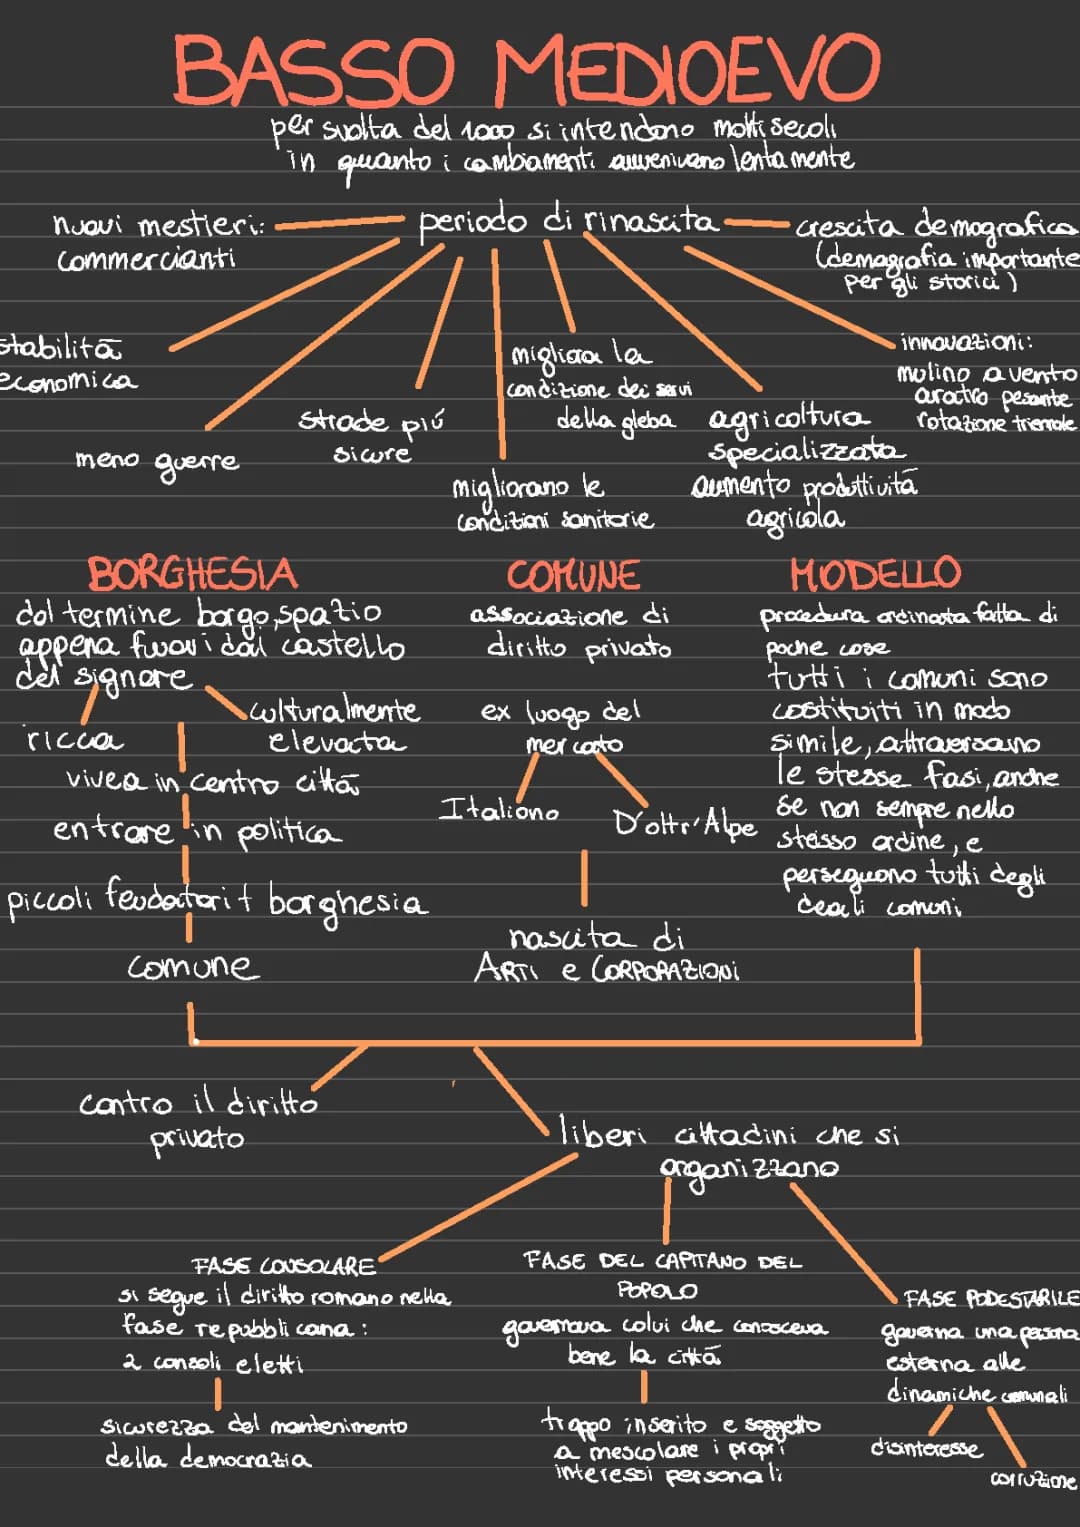 BASSO MEDIOEVO
per svolta del 1000 si intendono molti secoli
in quanto i cambiamenti avvenivano lentamente
nuovi mestieri:
commercianti
periodo di rinascita
crescita demografica
(demografia importante
per gli storici)
stabilità
economica
meno guerre
strade più
sicure
migliora la
condizione dei servi
della gleba
migliorano le
condizioni sanitarie
agricoltura
specializzata
aumento produttività
agricola
innovazioni:
mulino a vento
aratro pesante
rotazione triennale
BORGHESIA
dal termine borgo, spazio
appena fuori dal castello
del signore
ricca
culturalmente
elevata
vivea in centro città
entrare in politica
piccoli feudatari + borghesia
comune
COMUNE
associazione di
diritto privato
ex luogo del
mercato
Italiano
D'oltr'Alpe
nascita di
ARTI e CORPORAZIONI
MODELLO
procedura ordinata fatta di
poche cose
tutti i comuni sono
costituiti in modo
simile, attraversano
le stesse fasi, anche
se non sempre nello
stesso ordine, e
perseguono tutti degli
ideali comuni
contro il diritto
privato
liberi cittadini che si
organizzano
FASE CONSOLARE
si segue il diritto romano nella
fase repubblicana:
2 consoli eletti
sicurezza del mantenimento
della democrazia
FASE DEL CAPITANO DEL
POPOLO
governava colui che conosceva
bene la città
troppo inserito e soggetto
a mescolare i propri
interessi personali
FASE PODESTARILE
governa una persona
esterna alle
dinamiche comunali
disinteresse
corruzione